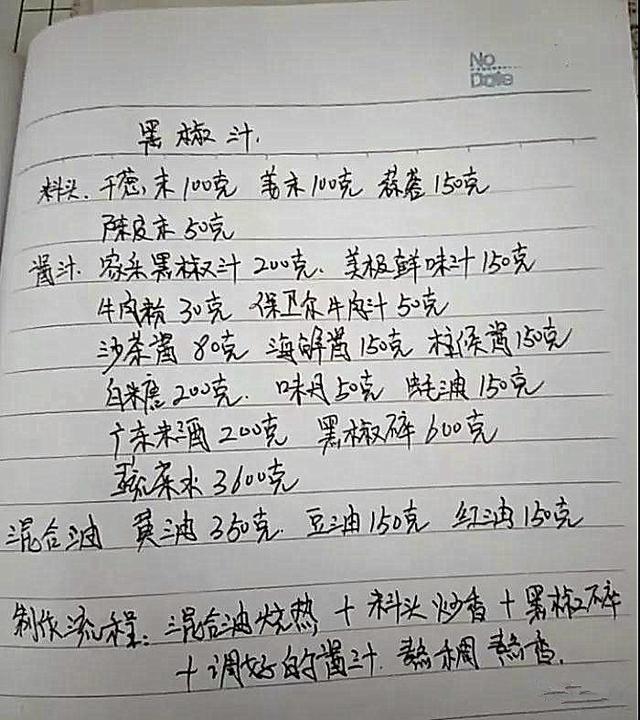 No
Date
黑椒汁.
料头. 干葱末100克 姜末100克 蒜蓉150克
陈皮末50克
酱汁. 家乐黑椒汁200克. 美极鲜味汁150克
牛肉粉30克 保卫尔牛肉汁50克
沙茶酱80克 海鲜酱150克 柱侯酱150克
白米唐200克. 味丹50克 蚝油150克
广东米酒200克 黑椒碎600克
蔬菜水3600克
混合油 黄油350克. 豆油150克 红油150克
制作流程: 混合油烧热 + 料头炒香 + 黑椒碎
+ 调好的酱汁. 熬稠 熬香.